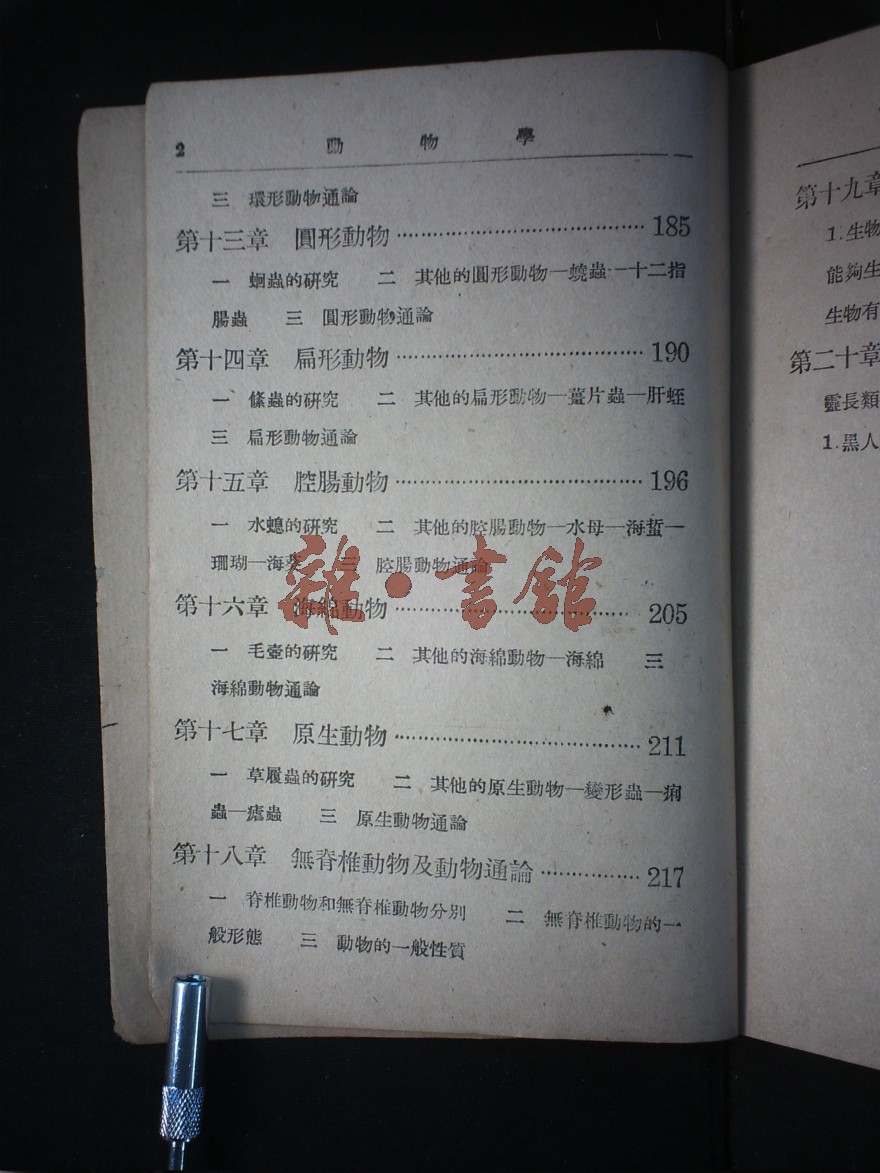 2 動物學
三 環形動物通論
第十三章 圓形動物……………………………185
一 蛔蟲的研究 二 其他的圓形動物—蟯蟲—十二指
腸蟲 三 圓形動物通論
第十四章 扁形動物……………………………190
一 絛蟲的研究 二 其他的扁形動物—薑片蟲—肝蛭
三 扁形動物通論
第十五章 腔腸動物……………………………196
一 水螅的研究 二 其他的腔腸動物—水母—海蜇—
珊瑚—海葵 三 腔腸動物通論
第十六章 海綿動物……………………………205
一 毛壺的研究 二 其他的海綿動物—海綿 三
海綿動物通論
第十七章 原生動物……………………………211
一 草履蟲的研究 二 其他的原生動物—變形蟲—痢
蟲—瘧蟲 三 原生動物通論
第十八章 無脊椎動物及動物通論……………217
一 脊椎動物和無脊椎動物分別 二 無脊椎動物的一
般形態 三 動物的一般性質
雜·書館
第十九章
1.生物
能夠生
生物有
第二十章
靈長類
1.黑人